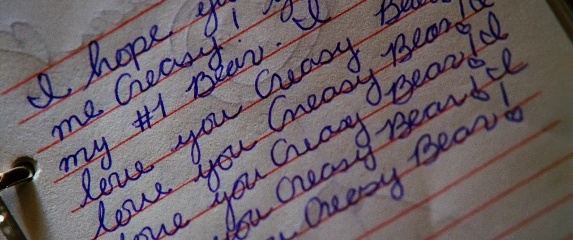 I hope
me Creasy!
my #1 Bear. I
love you Creasy
love you Creasy Bear! I
love you Creasy Bear! I
you Creasy Bear! I
Creasy Bear!